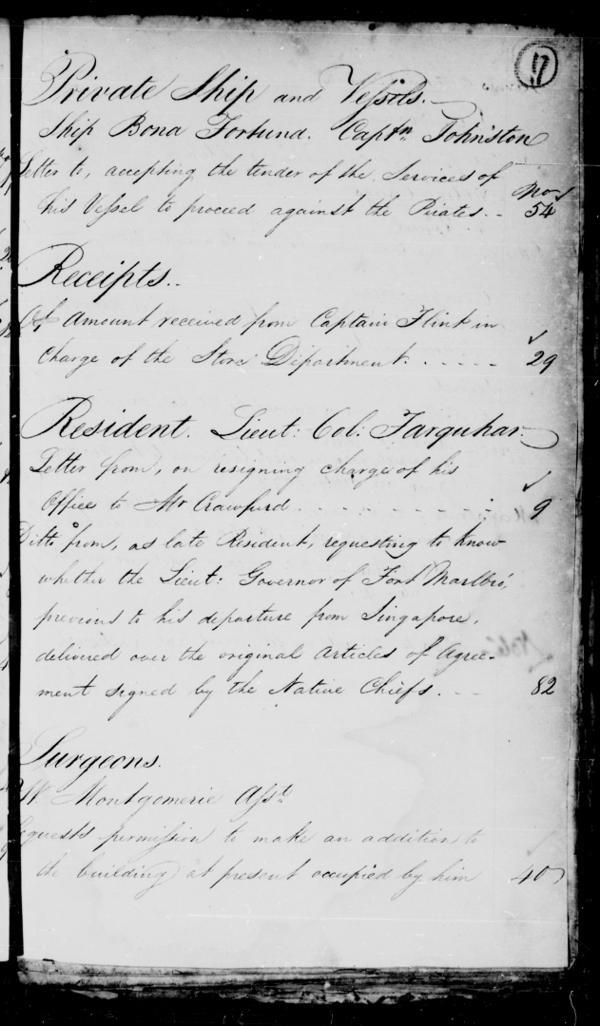 17
Private Ship and Vessels.
Ship Bona Fortund. Captn. Johnston
Letter to, accepting the tender of the Services of
his Vessel to proceed against the Pirates. - No 54
Receipts..
Of Amount received from Captain Flint in
Charge of the Store Department. . . . . . 29
Resident. Lieut: Col: Farquhar.
Letter from, on resigning charge of his
Office to Mr Crawfurd . . . . . . . . 9
Ditto from, as late Resident, requesting to know
whether the Lieut: Governor of Fort Marlbro',
previous to his departure from Singapore,
delivered over the original Articles of Agree-
ment signed by the Native Chiefs. - - 82
Surgeons.
W. Montgomerie Asst.
Requests permission to make an addition to
the building at present occupied by him 40